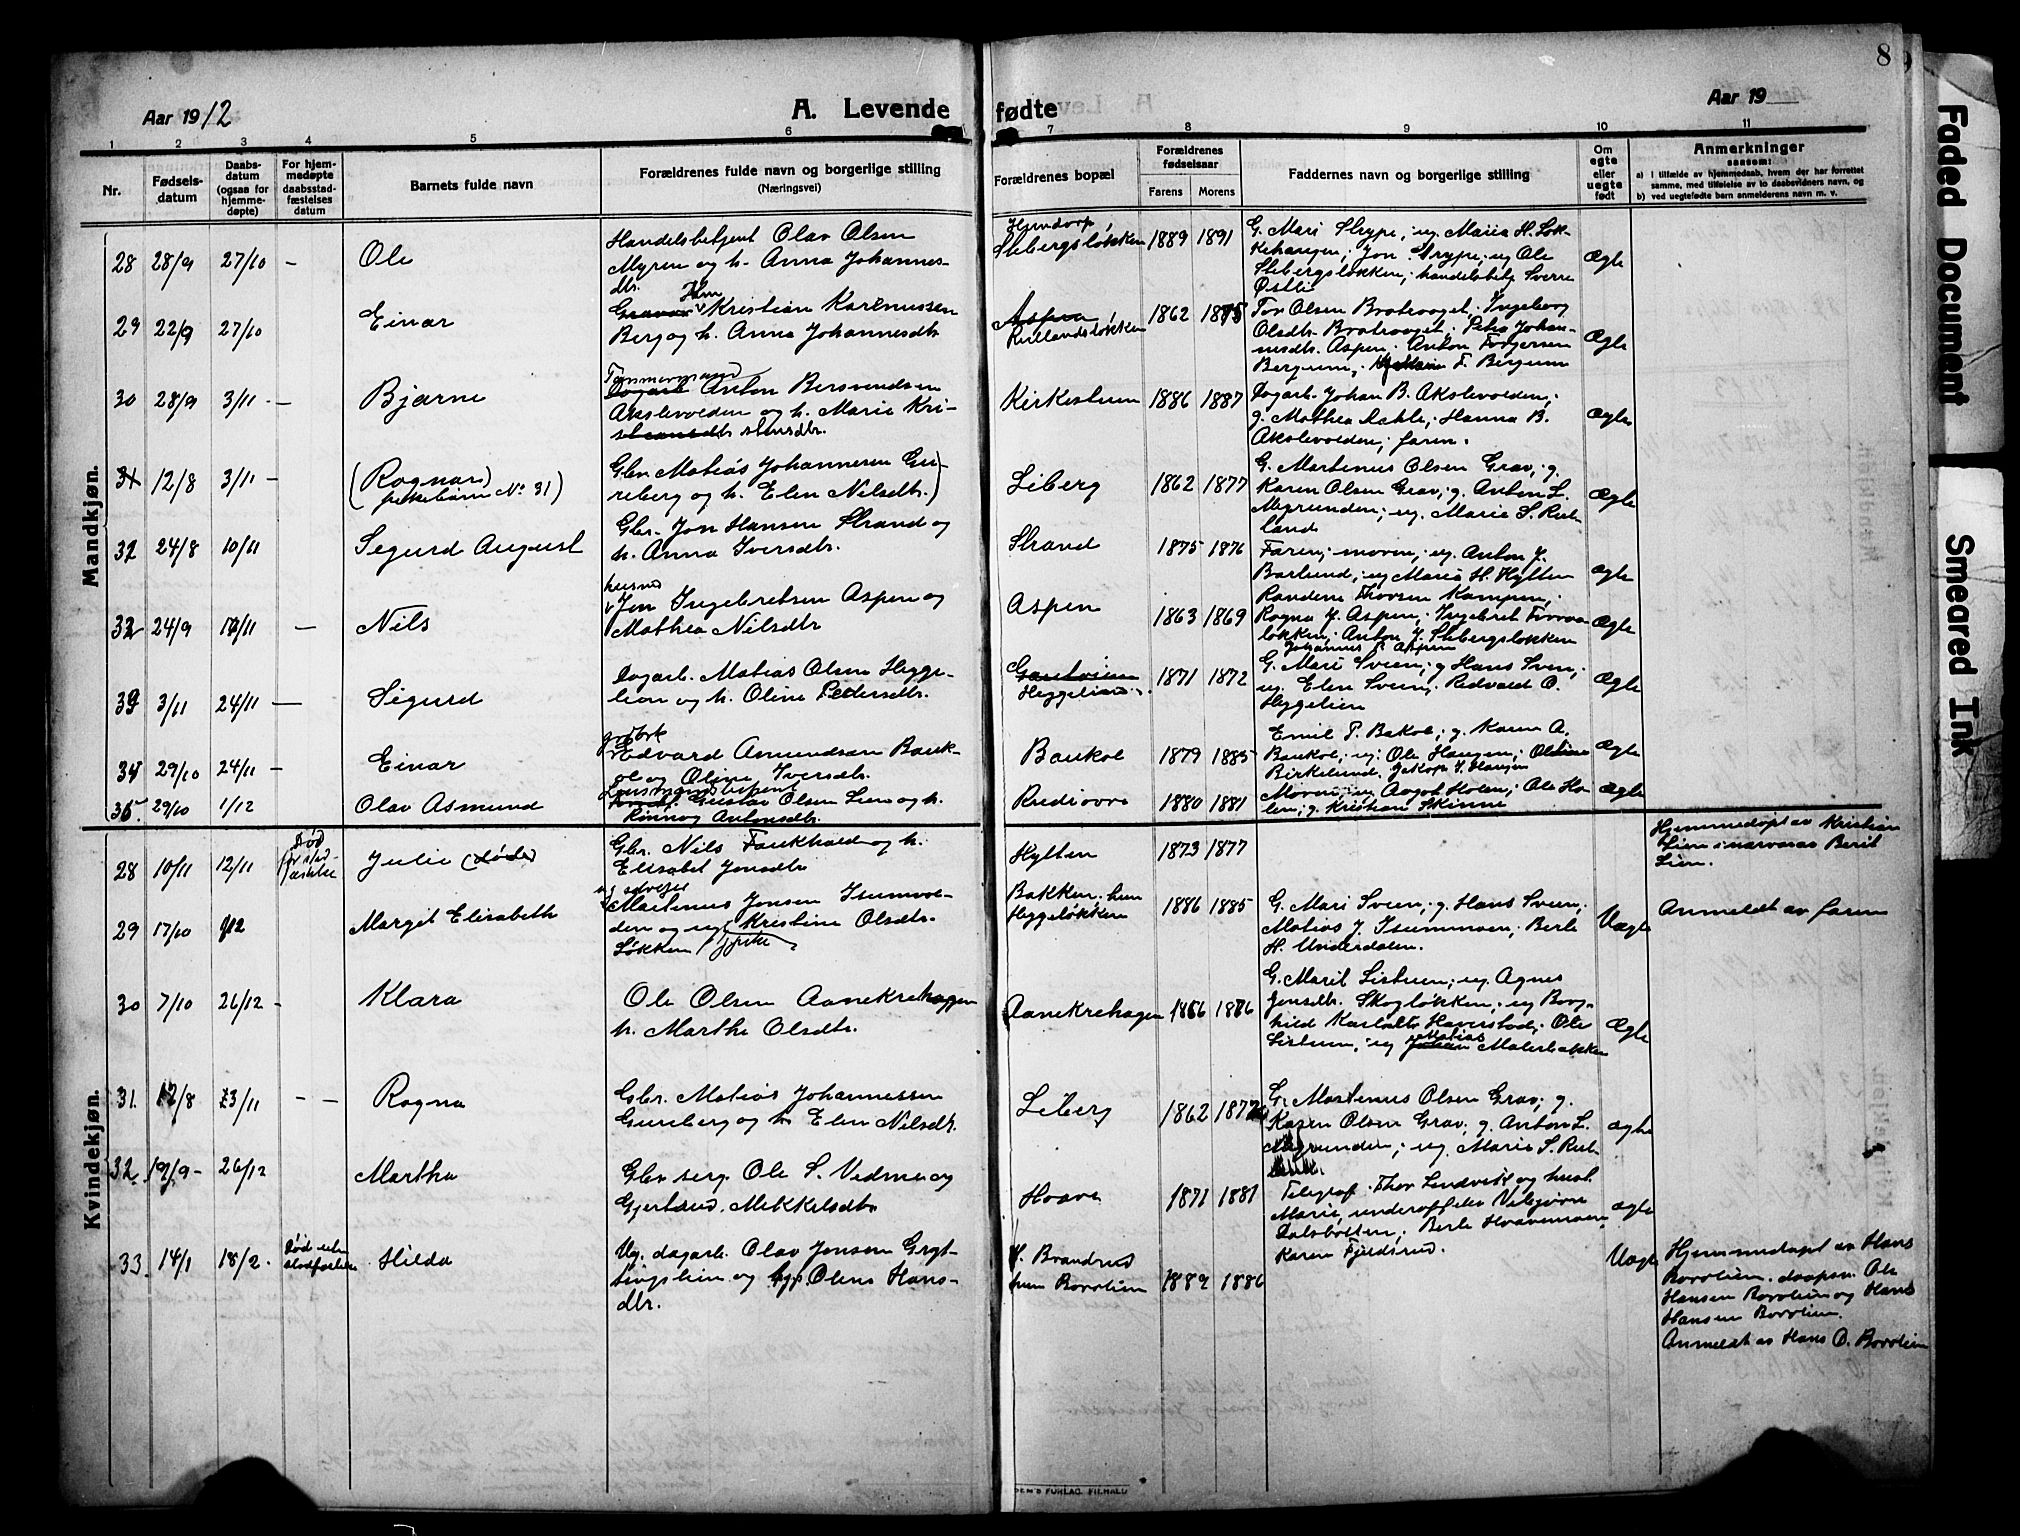 8
Aar 1912
A. Levende fødte
Aar 19
1 2 3 4 5 6 7 8 9 10 11
Nr.
Fødsels-
datum
Daabs-
datum
(ogsaa for
hjemme-
døpte)
For hjem-
medøpte
daabsstad-
fæstelses
datum
Barnets fulde navn
Forældrenes fulde navn og borgerlige stilling
(Næringsvei)
Forældrenes bopæl
Forældrenes
fødselsaar
Farens Morens
Faddernes navn og borgerlige stilling
Om
egte
eller
uegte
født
Anmerkninger
saasom:
a) i tilfælde av hjemmedaab, hvem der har forrettet
samme, med tilføielse av to daabsvidners navn, og
b) ved uegtefødte barn anmelderens navn m. v.
Mandkjøn.
28 28/9 27/10 — Ole
Handelsbetjent Olav Olsen
Myren og h. Anna Johannes-
dtr.
Stebergsløkken 1889 1891
G. Mari Strype; ug. Maria H. Løk-
kehaugen; Jon Strype; ug Ole
Stebergsløkken; handelsbetj. Sverre
Østli
Ægte
29 22/9 27/10 Einar
Kristian Karenussen
Berg og h. Anna Johannesdtr
Aspen
Ruilandsløkken 1862 1875
Tor Olsen Brotevoget; Ingeborg
Olsdtr. Brotevoget; Petra Johan-
nesdtr. Aspen; Anton
Bergum; F. Bergum
Ægte
30 28/9 3/11 — Bjarne
Tømmermand
Dagarb. Anton Bersvendsen
Akslevolden og h. Marie Kri-
stensdtr.
Kirkestuen 1886 1887
Dagarb. Johan B. Akslevolden;
g. Mathea Dahle; Hanna B.
Akslevolden; faren.
Ægte
31 12/8 3/11 — (Ragna)
pikebarn No 31)
Gbr. Matias Johannesen Gu-
reberg og h. Elen Nilsdtr.)
Liberg 1862 1877
G. Martinus Olsen Grav; g.
Karen Olsen Grav; g. Anton L.
Myrunden; ug. Marie S. Rui-
land
Ægte
31 24/8 10/11 Sigurd August
Gbr. Jon Hansen Strand og
h. Anna Iversdtr.
Strand 1875 1876
Faren; moren; ug. Anton J.
Barlund; ug Maria H. Hylten
Ægte
32 24/9 17/11 — Nils
husmd
Jon Ingebretsen Aspen og
Mathea Nilsdtr
Aspen 1863 1869
Randene Thorsen Kampen;
Ragna J. Aspen; Ingebret
løkken; Anton J. Stebergsløkken
Johannes J. Aspen
Ægte
33 3/11 24/11 — Sigurd
Dagarb. Matias Olsen Hegge-
lien og h. Oline Pedersdtr.
Heggelien 1871 1872
G. Mari Sveen; g Hans Sveen;
ug. Elen Sveen; Redvald O.
Heggelien
Ægte
34 29/10 24/11 — Einar
Edvard Amundsen Bauk-
ol og Oline Iversdtr.
Baukol 1879 1885
Emil P. Bakol; g. Karen A.
Baukol; ug: Ole Haugen; Oline
Birkelund. Jakop J. Haugen
Ægte
35 29/10 1/12 Olav Asmund
Lensmandsbetjent
Gustav Olsen Lien og h.
Rønnog Antonsdtr.
Rudiovre 1880 1881
Moren; ug Aagot Holen; Ole Ho-
len; g. Kristian Skinne
Ægte
Kvindekjøn.
28 10/11 12/11 Død
før stad-
fæstelse
Julie (døde)
Gbr. Nils Faukhald og h.
Elisabet Jonsdtr
Hylten 1873 1877
Hjemmedøpt av Kristian
Lien i nærværas Berit
Lien.
29 17/10 1/12 Margit Elisabeth
ug sdveier
Martinus Jonsen Isumvol-
den og ug. Kristine Olsdtr.
Løkken
Bakken; hun
Heggeløkken 1886 1885
G. Mari Sveen; g. Hans Sveen;
Matias J. Isummoen; Berte
H. Underdalen.
Uægte
Anmeldt av faren
30 7/10 26/12 — Klara
Ole Olsen Aanekrehagen
h. Marthe Olsdtr.
Aanekrehagen 1866 1876
G. Marit Listuen; ug Agnes
Jensdtr. Skogløkken; ug Borg-
hild Haverstad; Ole
Listuen; ug Matias Malerbakken
Ægte
31. 12/8 23/11 — — Ragna
Gbr. Matias Johannessen
Gureberg og h Elen Nilsdtr.
Liberg 1862 1877
G. Martinus Olsen Grav; g.
Karen Olsen Grav; g. Anton L.
Myrunden; ug. Marie S. Rui-
land.
ægte
32. 19/9 — 26/12 Martha
Gbr serg. Ole S. Vedum og
Gjertrud Mikkelsdtr
Hoave 1871 1881
Telegraf. Thor Lindvik og hust.
Marie; underoffiser
Dalsbotten; Berte Hoavemoen
Karen Fjerdsrud.
ægte
33. 14/1 18/2. Død uten
stadfæstelse
Hilda
Ug. dagarb. Olav Jonsen Gryt-
tingslien og Olene Hans-
dtr.
hun Borolien 1889 1886
Uægte
Hjemmedøpt av Hans
Borolien. daapsv. Ole
Hansen Borolien og Hans
Hansen Borolien.
Anmeldt av Hans O. Borolien
Faded Document
Smeared Ink